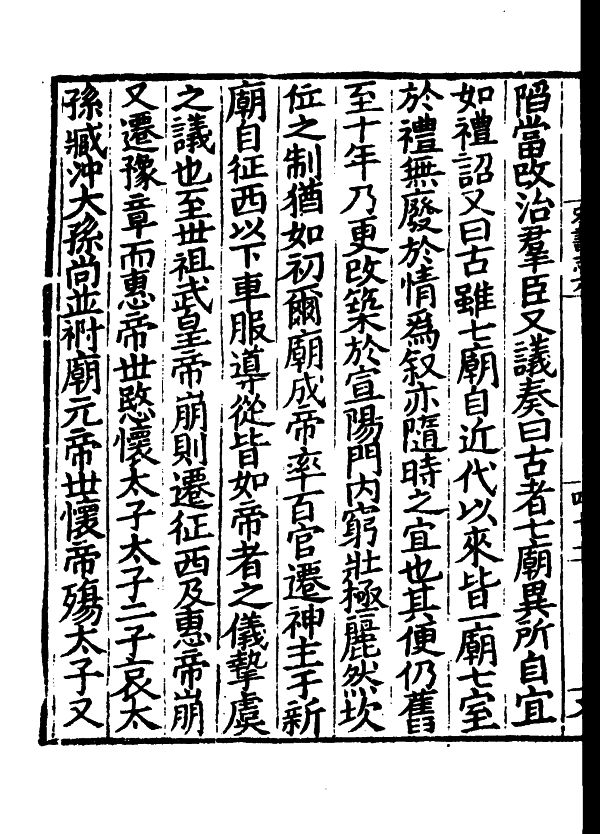 陷當改治羣臣又議奏曰古者七廟異所自宜
如禮詔又曰古雖七廟自近代以來皆一廟七室
於禮無廢於情爲叙亦隨時之宜也其便仍舊
至十年乃更改築於宣陽門內窮壯極麗然坎
位之制猶如初爾廟成帝率百官遷神主于新
廟自征西以下車服導從皆如帝者之儀摯虞
之議也至世祖武皇帝崩則遷征西及惠帝崩
又遷豫章而惠帝世愍懷太子太子二子哀太
孫臧冲太孫尚並祔廟元帝世懷帝殤太子又